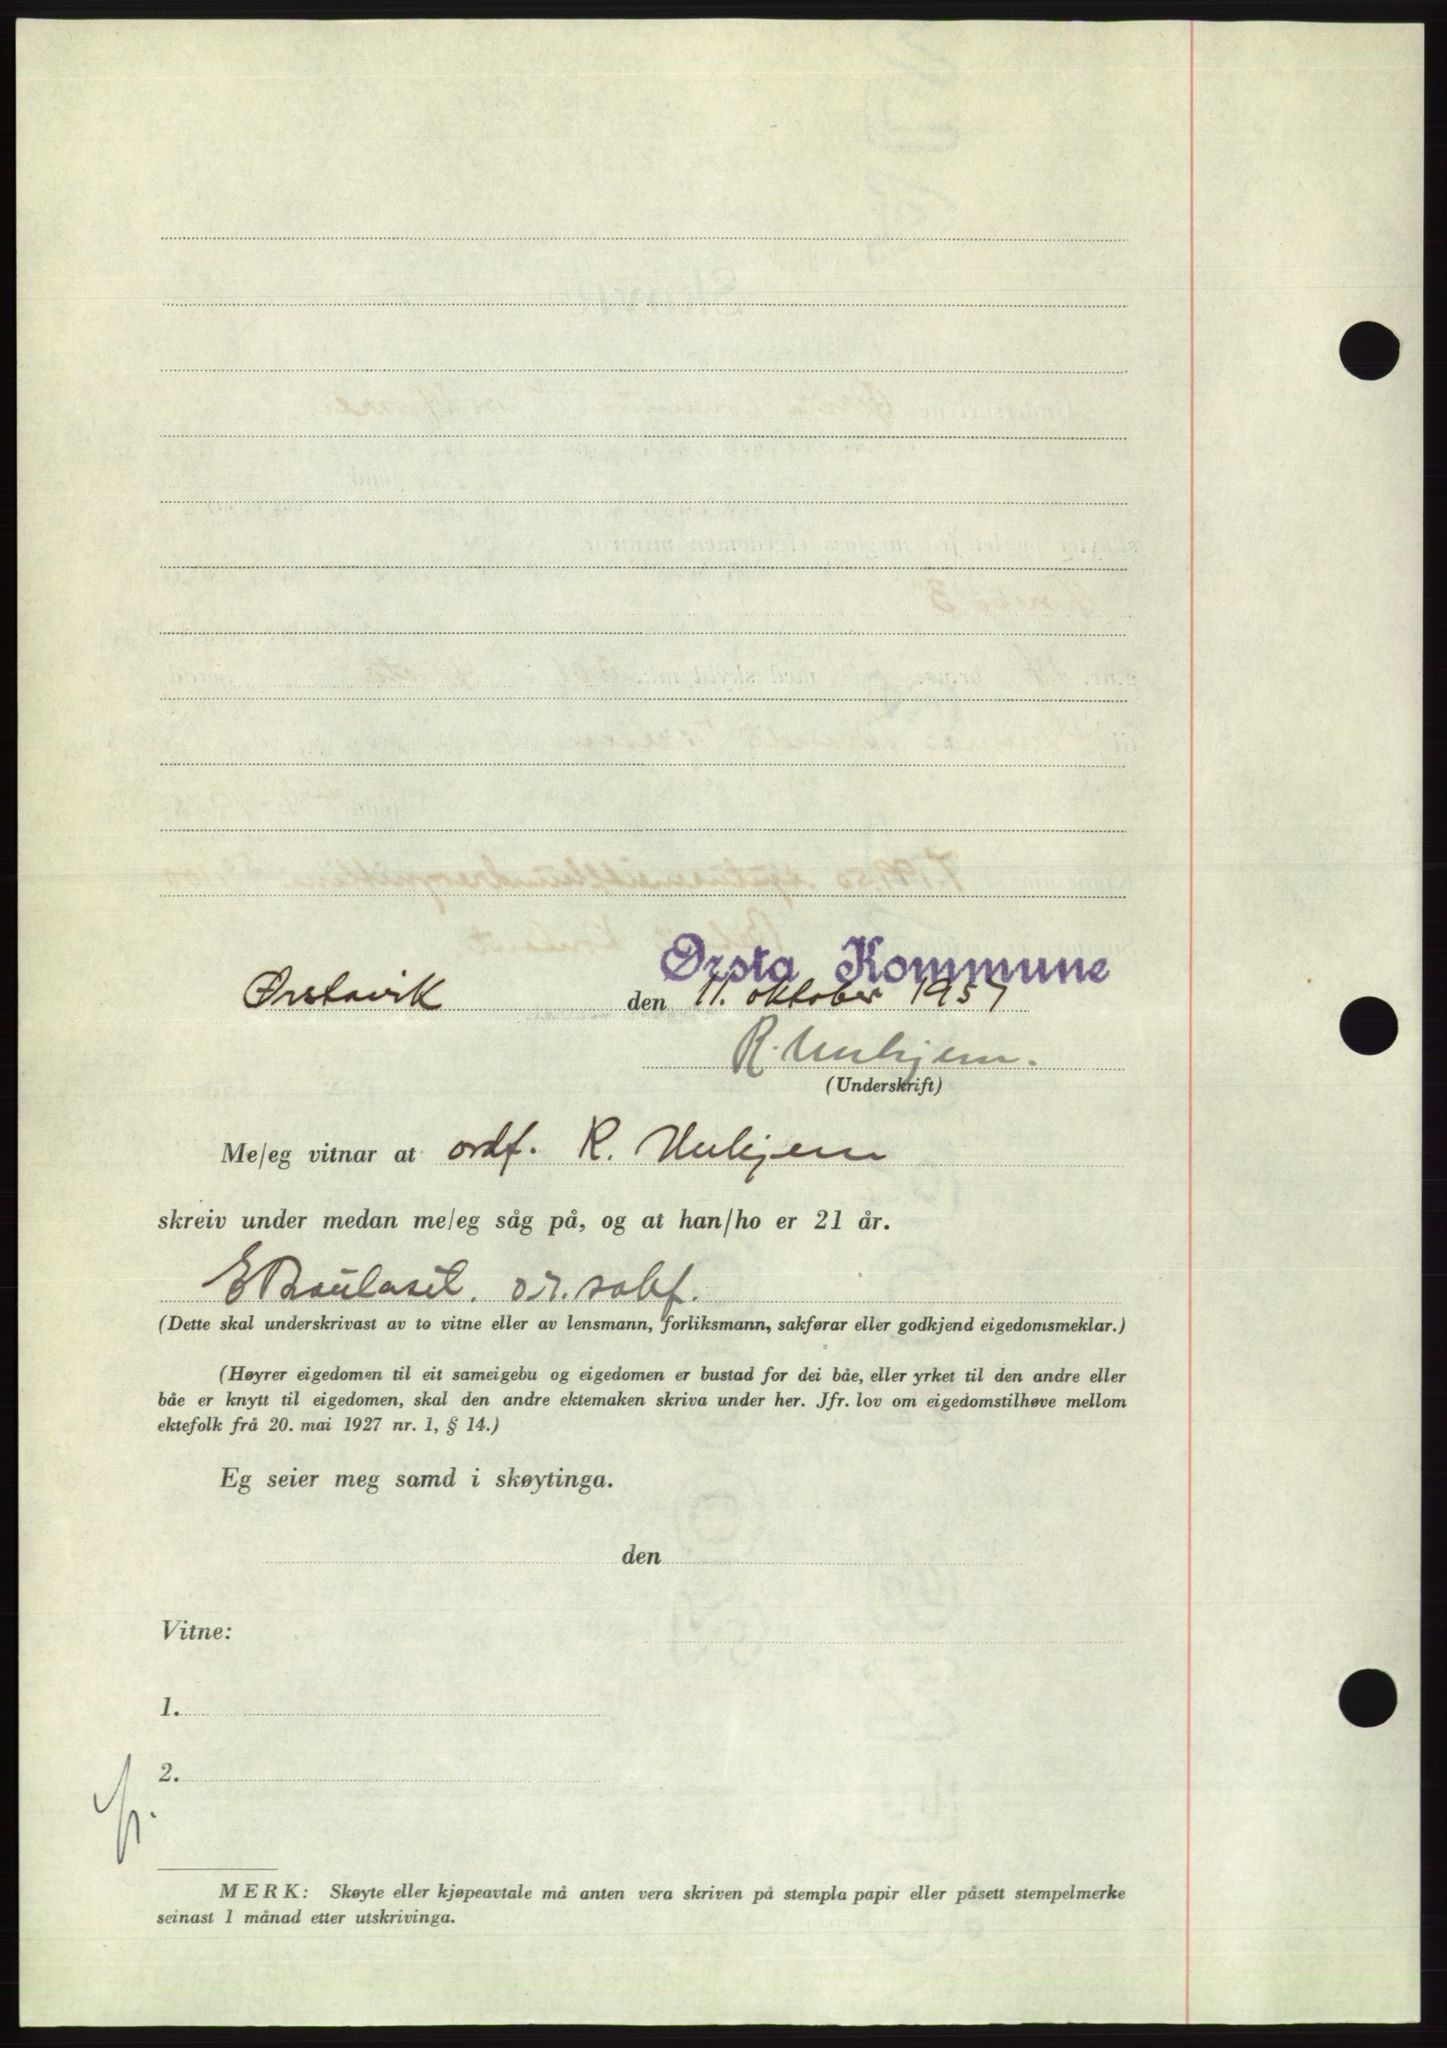 Ørsta Kommune
Ørstavik den 11. oktober 1957
(Underskrift)
Me/eg vitnar at ordf. R.
skreiv under medan me/eg såg på, og at han/ho er 21 år.
(Dette skal underskrivast av to vitne eller av lensmann, forliksmann, sakførar eller godkjend eigedomsmeklar.)
(Høyrer eigedomen til eit sameigebu og eigedomen er bustad for dei båe, eller yrket til den andre eller
båe er knytt til eigedomen, skal den andre ektemaken skriva under her. Jfr. lov om eigedomstilhøve mellom
ektefolk frå 20. mai 1927 nr. 1, § 14.)
Eg seier meg samd i skøytinga.
den
Vitne:
1.
2.
MERK: Skøyte eller kjøpeavtale må anten vera skriven på stempla papir eller påsett stempelmerke
seinast 1 månad etter utskrivinga.